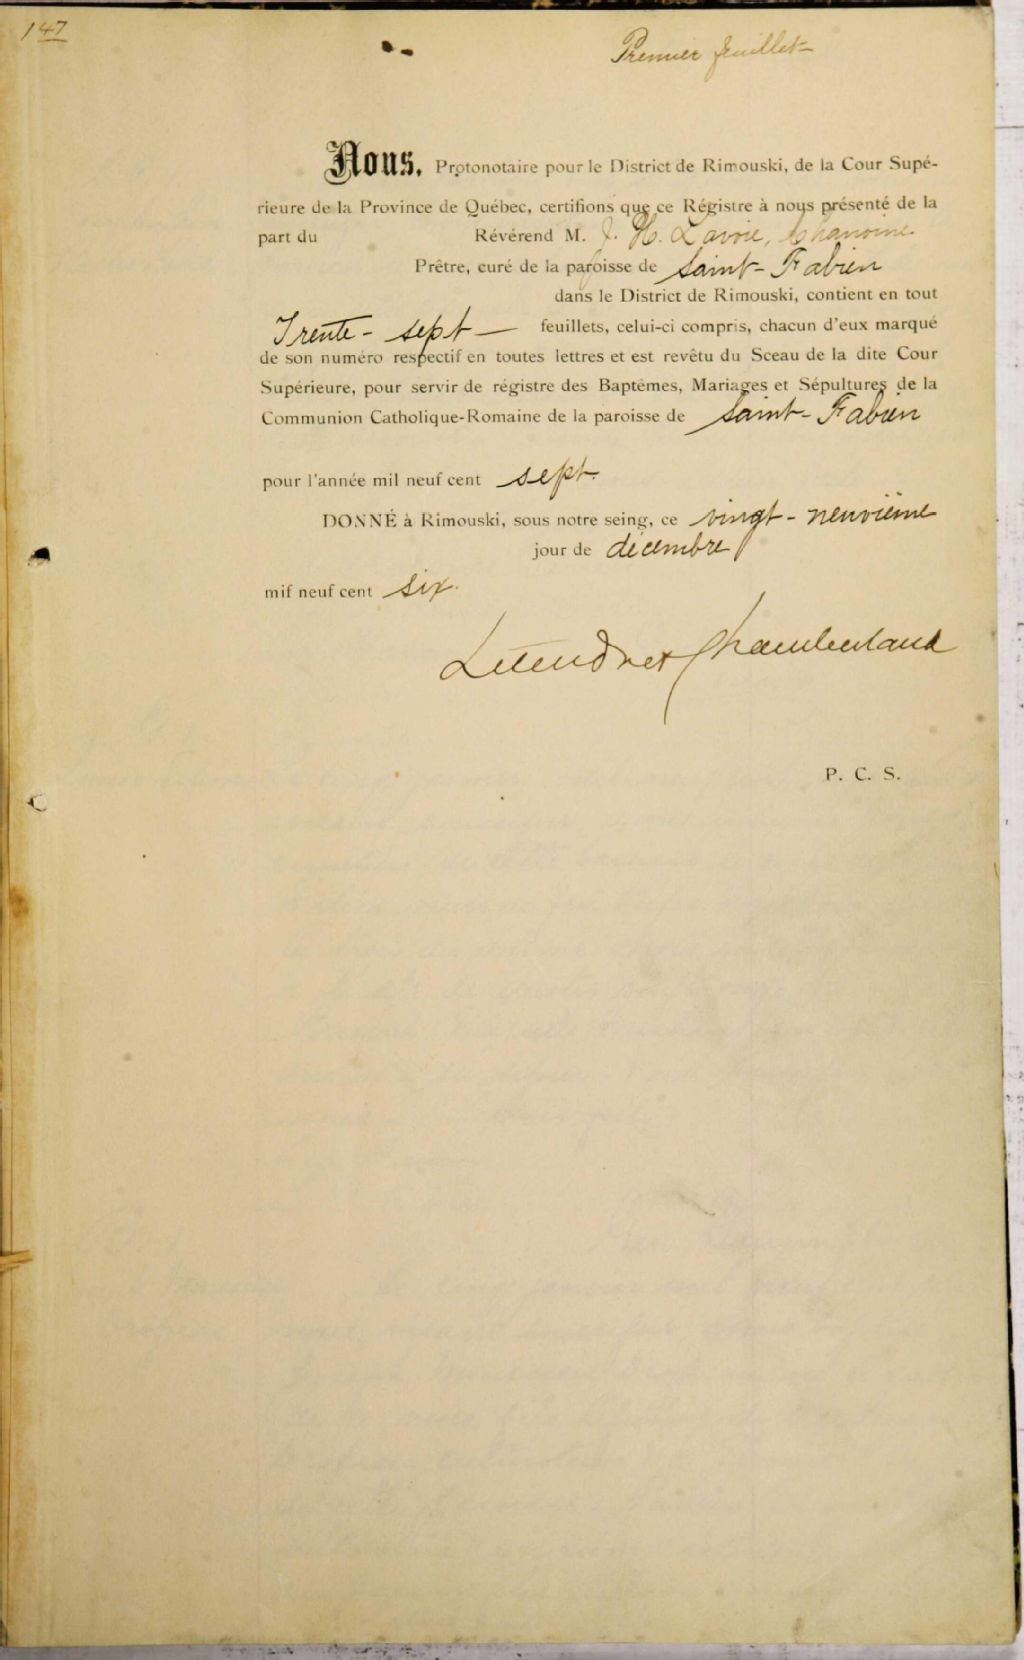 147
Premier feuillet
Nous, Protonotaire pour le District de Rimouski, de la Cour Supé-
rieure de la Province de Québec, certifions que ce Régistre à nous présenté de la
part du Révérend M. J. H. Lavoie, Chanoine
Prêtre, curé de la paroisse de Saint-Fabien
dans le District de Rimouski, contient en tout
Trente-sept feuillets, celui-ci compris, chacun d'eux marqué
de son numéro respectif en toutes lettres et est revêtu du Sceau de la dite Cour
Supérieure, pour servir de régistre des Baptêmes, Mariages et Sépultures de la
Communion Catholique-Romaine de la paroisse de Saint-Fabien
pour l'année mil neuf cent sept.
DONNÉ à Rimouski, sous notre seing, ce vingt-neuvième
jour de décembre
mil neuf cent six.
Letendre & Chamberland
P. C. S.